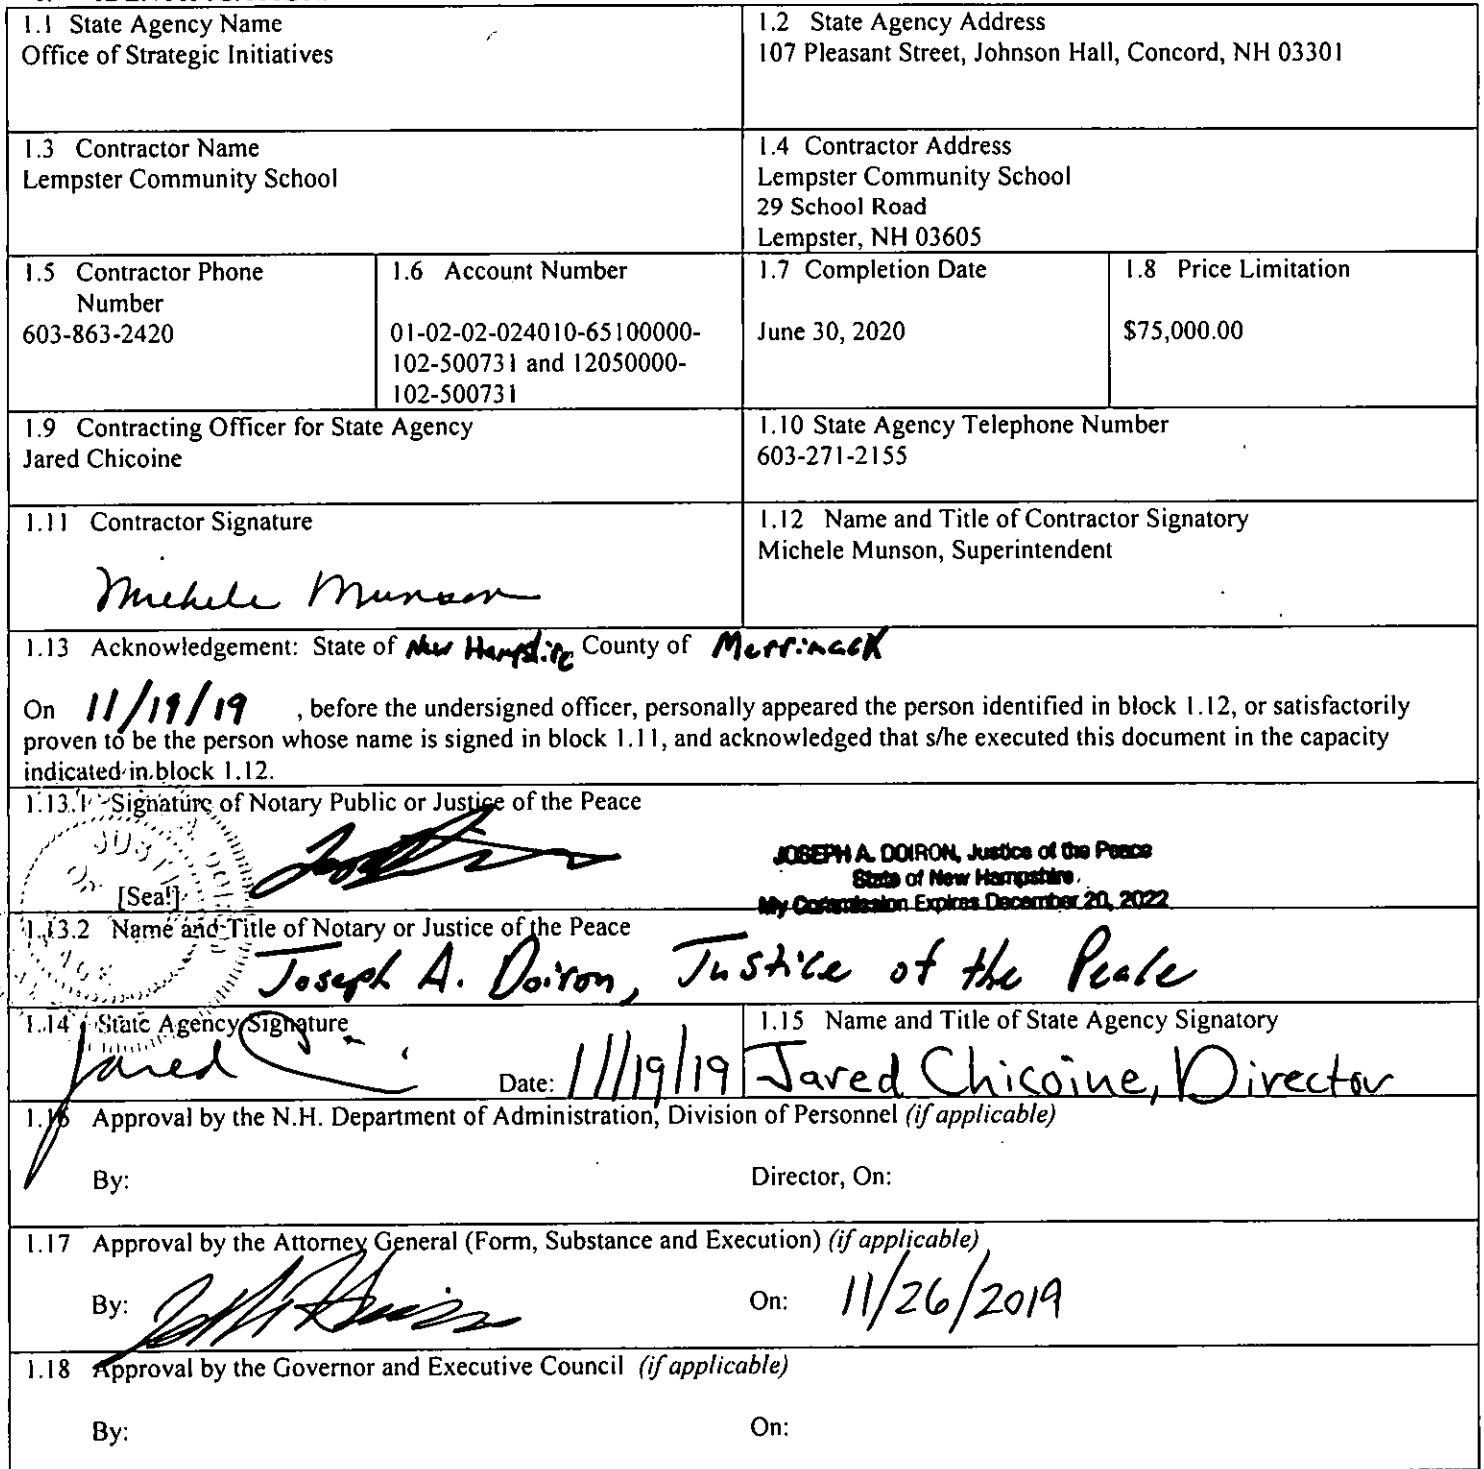 1.1 State Agency Name
Office of Strategic Initiatives
1.2 State Agency Address
107 Pleasant Street, Johnson Hall, Concord, NH 03301
1.3 Contractor Name
Lempster Community School
1.4 Contractor Address
Lempster Community School
29 School Road
Lempster, NH 03605
1.5 Contractor Phone
Number
603-863-2420
1.6 Account Number
01-02-02-024010-65100000-
102-500731 and 12050000-
102-500731
1.7 Completion Date
June 30, 2020
1.8 Price Limitation
$75,000.00
1.9 Contracting Officer for State Agency
Jared Chicoine
1.10 State Agency Telephone Number
603-271-2155
1.11 Contractor Signature
Michele Munson
1.12 Name and Title of Contractor Signatory
Michele Munson, Superintendent
1.13 Acknowledgement: State of New Hampshire County of Merrimack
On 11/19/19 , before the undersigned officer, personally appeared the person identified in block 1.12, or satisfactorily
proven to be the person whose name is signed in block 1.11, and acknowledged that s/he executed this document in the capacity
indicated in block 1.12.
1.13.1 Signature of Notary Public or Justice of the Peace
[Seal]
JOSEPH A. DOIRON, Justice of the Peace
State of New Hampshire
My Commission Expires December 20, 2022
1.13.2 Name and Title of Notary or Justice of the Peace
Joseph A. Doiron, Justice of the Peace
1.14 State Agency Signature
Jared Date: 11/19/19
1.15 Name and Title of State Agency Signatory
Jared Chicoine, Director
1.16 Approval by the N.H. Department of Administration, Division of Personnel (if applicable)
By: Director, On:
1.17 Approval by the Attorney General (Form, Substance and Execution) (if applicable)
By: On: 11/26/2019
1.18 Approval by the Governor and Executive Council (if applicable)
By: On: